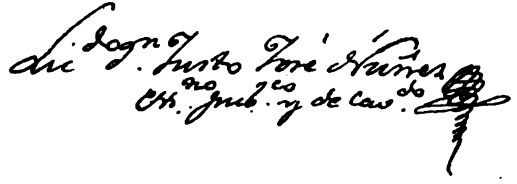 Lic.do Dn. Justo José Nuñez
Ess.no pub.co y de Cav.do